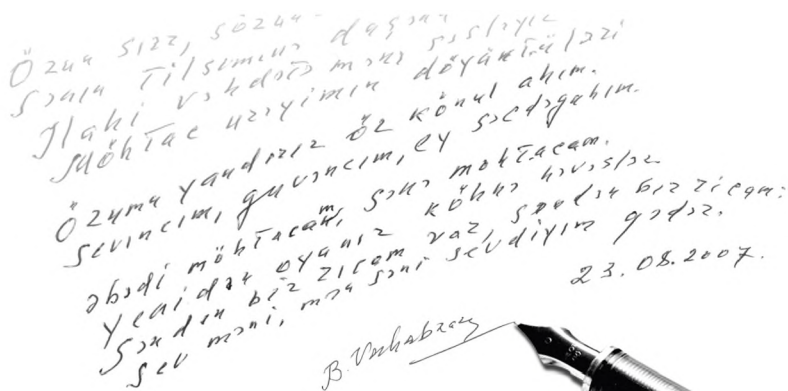 Özün sirr, sözün
Sənin tilsiminə daşını səsləyir
İlahi vəhdətə mənə
Möhtac ürəyimin döyüntüləri
Özümü yandırır öz könül ahım.
Sevincim, güvəncim, ey səcdəgahım.
Əbədi möhtacam, sənə möhtacam.
Yenidən oyanır köhnə həvəslər
Səndən bir ricam var, səndən bir ricam:
Sev məni, mən səni sevdiyim qədər.
23.08.2007.
B. Vahabzadə